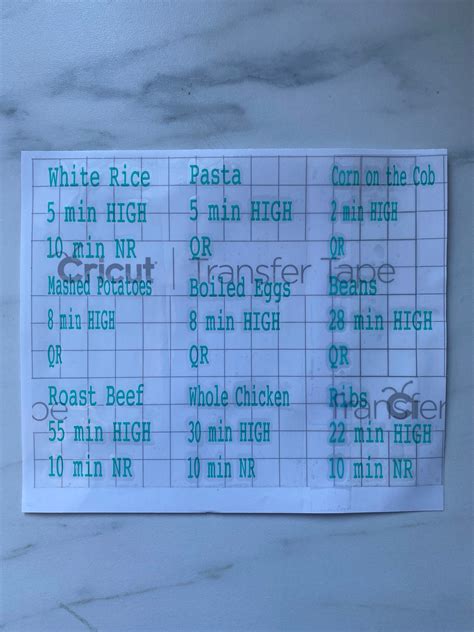 White Rice
5 min HIGH
10 min NR
Pasta
5 min HIGH
QR
Corn on the Cob
2 min HIGH
QR
Cricut | Transfer Tape
Mashed Potatoes
8 min HIGH
QR
Boiled Eggs
8 min HIGH
QR
Beans
28 min HIGH
QR
Roast Beef
55 min HIGH
10 min NR
Whole Chicken
30 min HIGH
10 min NR
Ribs
22 min HIGH
10 min NR
pe
Transfer